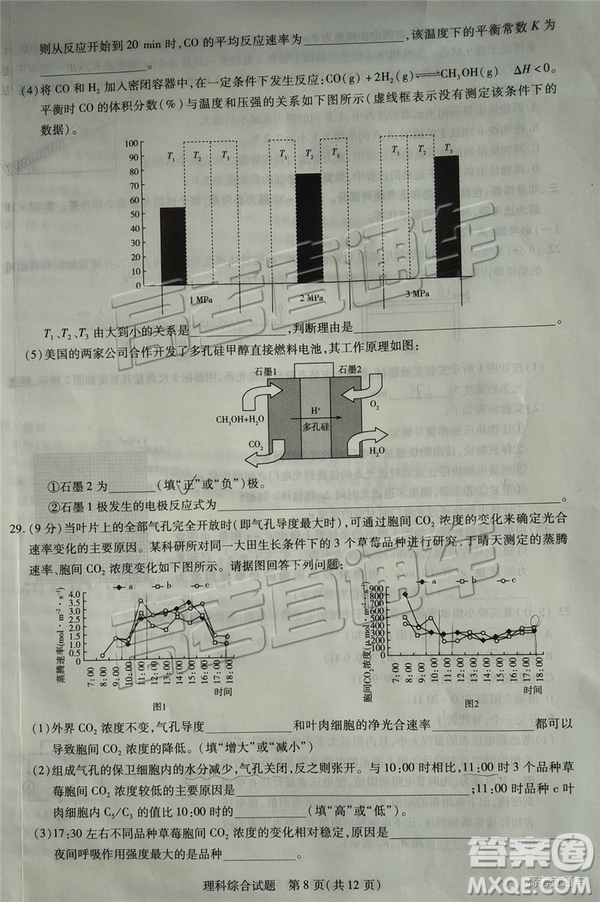 则从反应开始到20 min时,CO的平均反应速率为____________,该温度下的平衡常数K为
____________。
(4)将CO和H₂加入密闭容器中,在一定条件下发生反应:CO(g)+2H₂(g)⇌CH₃OH(g) ΔH<0。
平衡时CO的体积分数(%)与温度和压强的关系如下图所示(虚线框表示没有测定该条件下的
数据)。
100
90
80
70
60
50
40
30
20
10
0
T₁ T₂ T₃ T₁ T₂ T₃ T₁ T₂ T₃
1 MPa 2 MPa 3 MPa
T₁、T₂、T₃由大到小的关系是____________,判断理由是____________。
(5)美国的两家公司合作开发了多孔硅甲醇直接燃料电池,其工作原理如图:
石墨1 石墨2
CH₃OH+H₂O H⁺ O₂
CO₂ 多孔硅 H₂O
①石墨2为______(填“正”或“负”)极。
②石墨1极发生的电极反应式为____________。
29.(9分)当叶片上的全部气孔完全开放时(即气孔导度最大时),可通过胞间CO₂浓度的变化来确定光合
速率变化的主要原因。某科研所以大田生长条件下的3个草莓品种进行研究,于晴天测定的蒸腾
速率、胞间CO₂浓度变化如下图所示。请据图回答下列问题:
a b c
蒸腾速率(mol·m⁻²·s⁻¹)
4.0
3.5
3.0
2.5
2.0
1.5
1.0
0.5
0.0
7:00 8:00 9:00 10:00 11:00 12:00 13:00 14:00 15:00 16:00 17:00 18:00
时间
图1
a b c
胞间CO₂浓度
900
800
700
600
500
400
300
200
100
0
7:00 8:00 9:00 10:00 11:00 12:00 13:00 14:00 15:00 16:00 17:00 18:00
时间
图2
(1)外界CO₂浓度不变,气孔导度____________和叶肉细胞的净光合速率____________都可以
导致胞间CO₂浓度的降低。(填“增大”或“减小”)
(2)组成气孔的保卫细胞内的水分减少,气孔关闭,反之则张开。与10:00时相比,11:00时3个品种草
莓胞间CO₂浓度较低的主要原因是____________;11:00时品种c叶
肉细胞内C₅/C₃的值比10:00时的____________(填“高”或“低”)。
(3)17:30左右不同品种草莓胞间CO₂浓度的变化相对稳定,原因是____________。
夜间呼吸作用强度最大的是品种____________。
理科综合试题 第8页(共12页)
高考直通车
高考直通车
答案圈
MXQE.COM
高考直通车